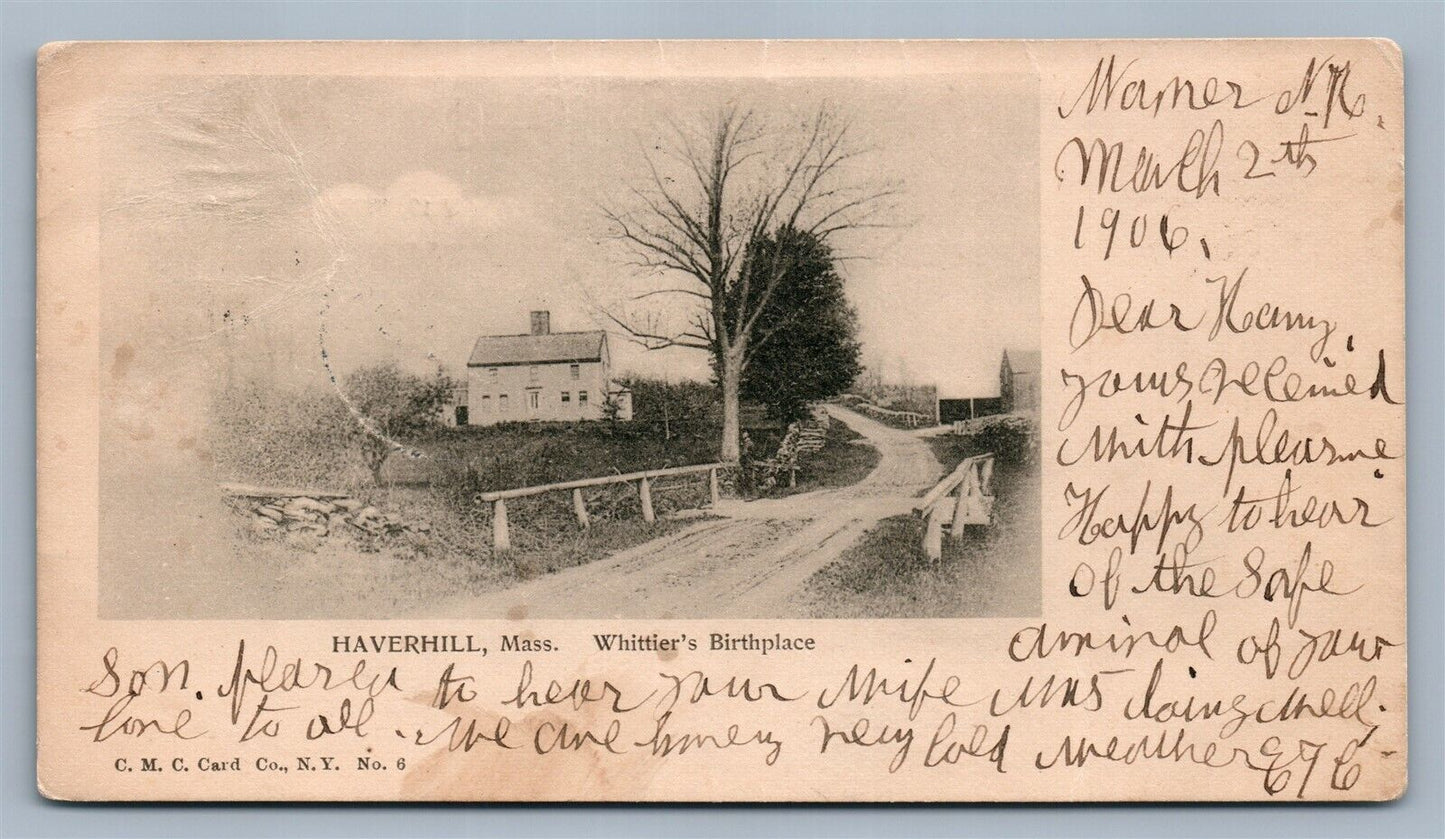 Warner N.H.
March 2th
1906.
Dear Harry,
yours received
with pleasure
Happy to hear
of the Safe
arrival of your
Son. pleased to hear your Wife was doing well.
love to all. We are having very Cold weather ETC
HAVERHILL, Mass. Whittier's Birthplace
C. M. C. Card Co., N. Y. No. 6